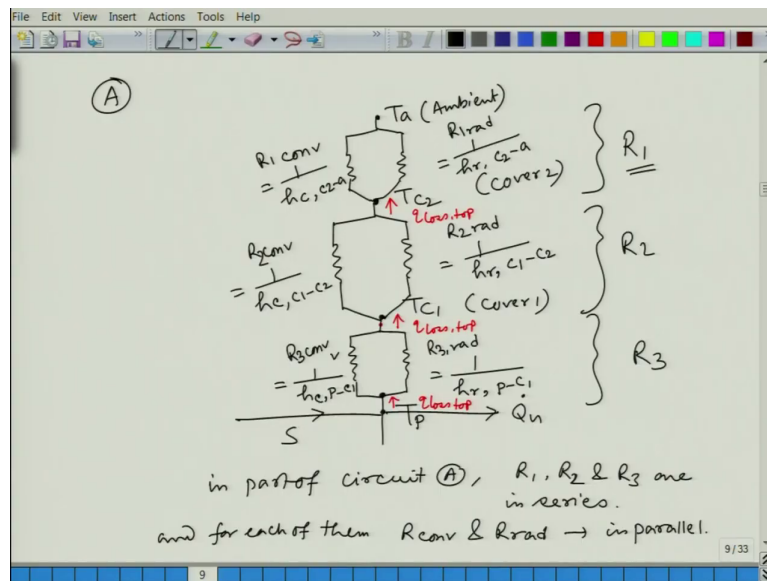 File Edit View Insert Actions Tools Help
A
Ta (Ambient)
R1 conv
= 1/hc, c2-a
R1rad
= 1/hr, c2-a
(cover2)
R1
Tc2
qloss,top
R2conv
= 1/hc, c1-c2
R2rad
= 1/hr, c1-c2
R2
Tc1 (cover1)
qloss,top
R3conv
= 1/hc, p-c1
R3,rad
= 1/hr, p-c1
R3
qloss,top
S
Tp
Q̇u
in part of circuit A, R1, R2 & R3 are
in series.
and for each of them Rconv & Rrad → in parallel.
9/33
9